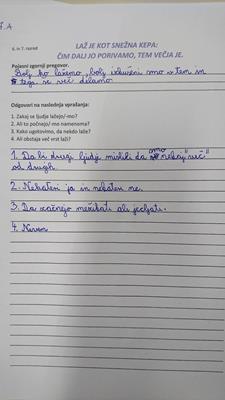 7. A
6. in 7. razred
LAŽ JE KOT SNEŽNA KEPA:
ČIM DALJ JO PORIVAMO, TEM VEČJA JE.
Pojasni zgornji pregovor.
Bolj ko lažemo, bolj izkušeni smo s tem in
tega se več delamo.
Odgovori na naslednja vprašanja:
1. Zakaj se ljudje lažejo/-mo?
2. Ali to počnejo/-mo namenoma?
3. Kako ugotovimo, da nekdo laže?
4. Ali obstaja več vrst laži?
1. Da bi drugi ljudje mislili da smo nekaj "več"
od drugih.
2. Nekateri ja in nekateri ne.
3. Da začnejo mežikati ali jecljati.
4. Nevem